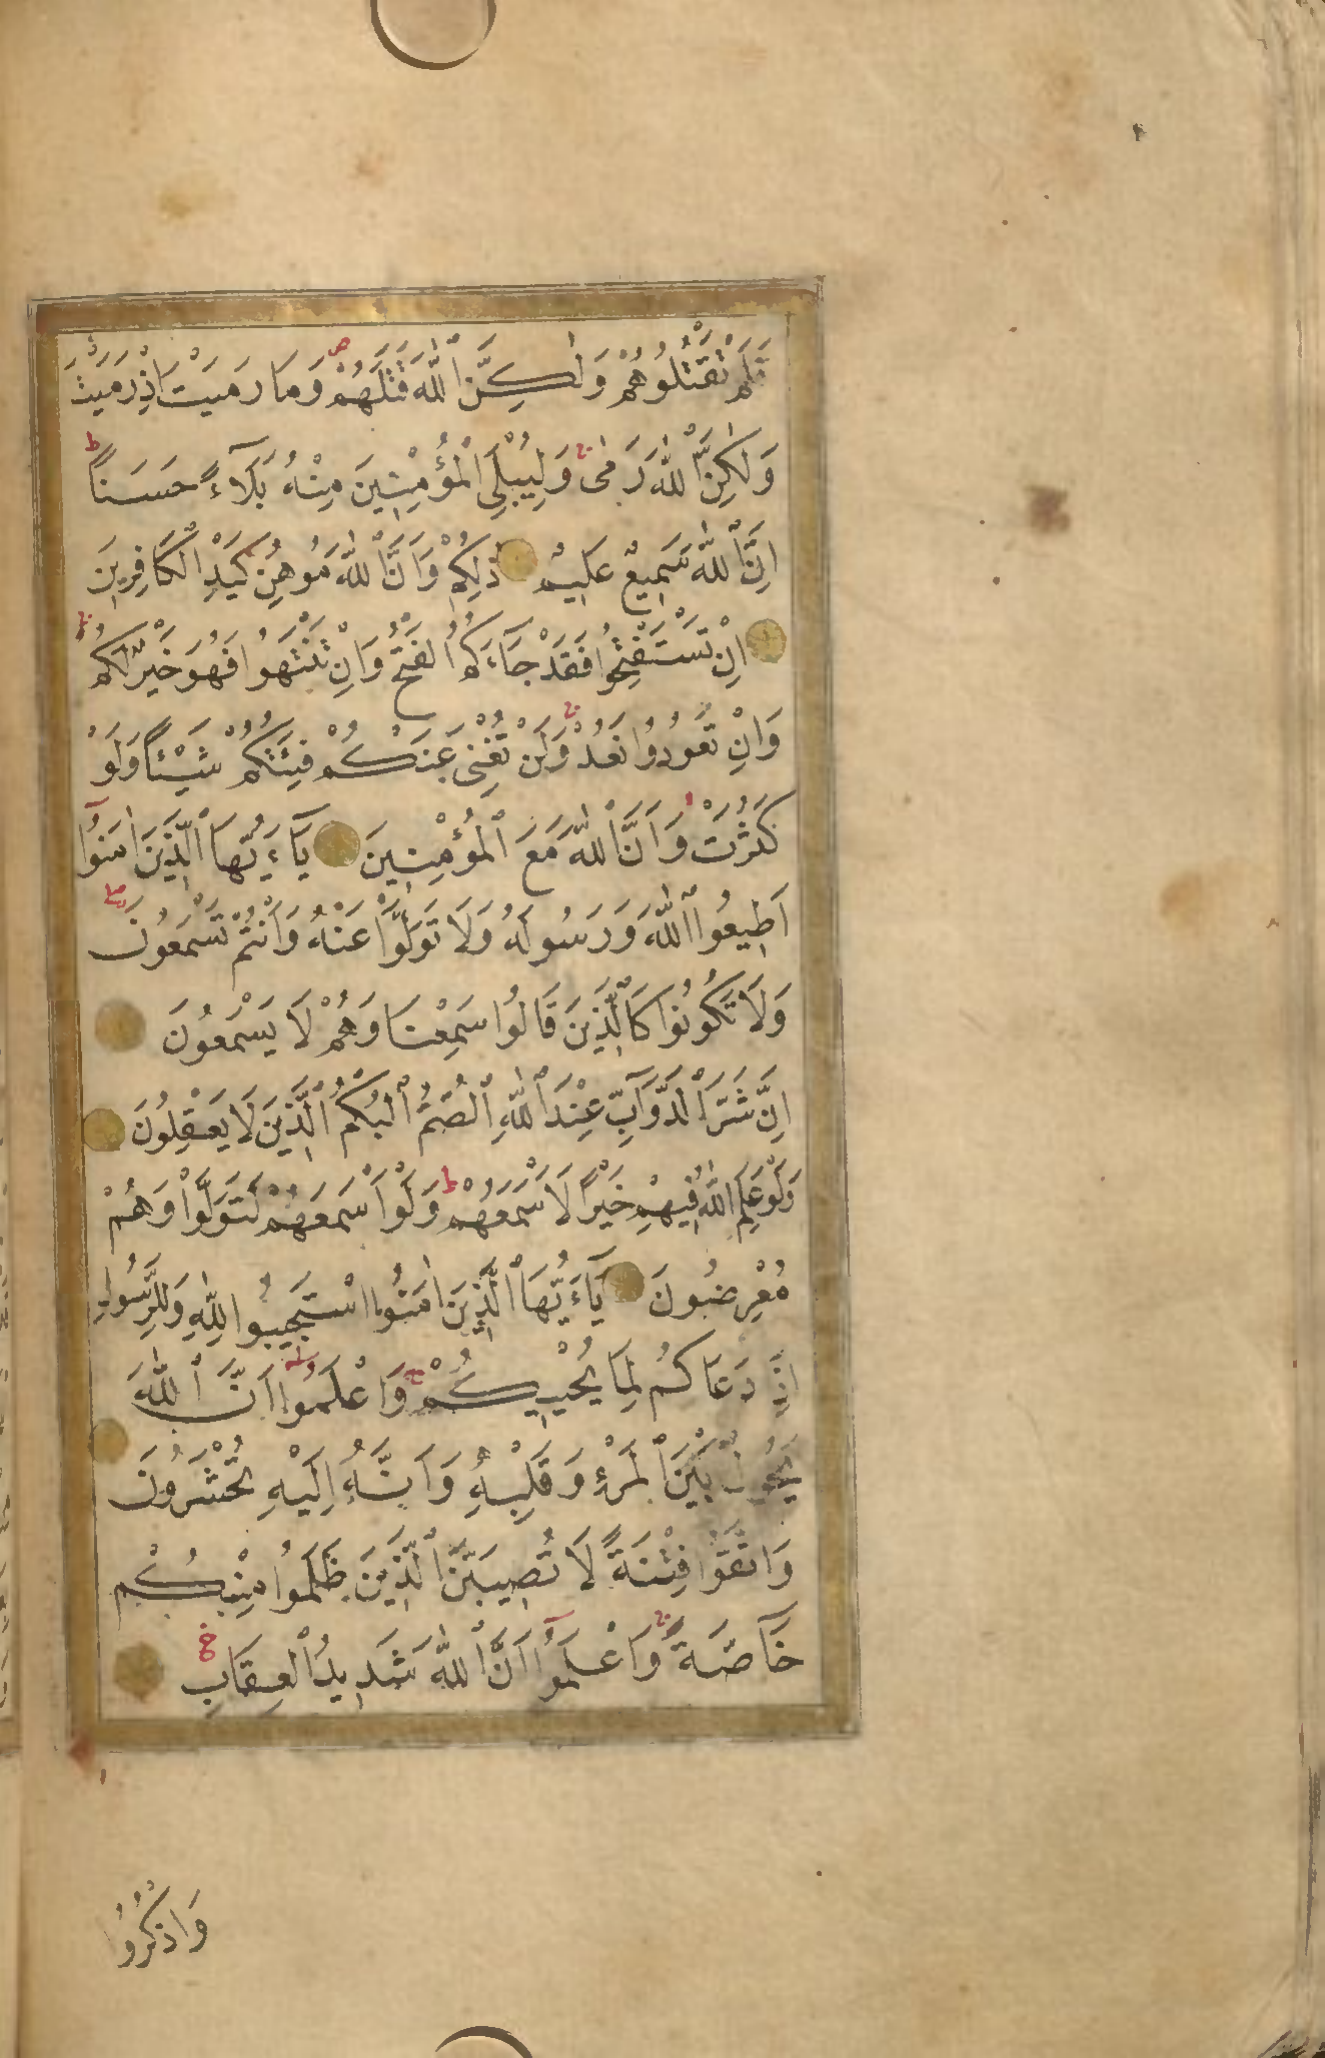 فَلَمْ تَقْتُلُوهُمْ وَلٰكِنَّ ٱللّٰهَ قَتَلَهُمْ ص وَمَا رَمَيْتَ اِذْ رَمَيْتَ
وَلٰكِنَّ ٱللّٰهَ رَمٰى ج وَلِيُبْلِيَ ٱلْمُؤْمِنِينَ مِنْهُ بَلَآءً حَسَنًا ط
اِنَّ ٱللّٰهَ سَمِيعٌ عَلِيمٌ ذٰلِكُمْ وَاَنَّ ٱللّٰهَ مُوهِنُ كَيْدِ ٱلْكَافِرِينَ
اِنْ تَسْتَفْتِحُوا فَقَدْ جَآءَكُمُ ٱلْفَتْحُ وَاِنْ تَنْتَهُوا فَهُوَ خَيْرٌ لَكُمْ ج
وَاِنْ تَعُودُوا نَعُدْ ج وَلَنْ تُغْنِيَ عَنْكُمْ فِئَتُكُمْ شَيْئًا وَلَوْ
كَثُرَتْ لا وَاَنَّ ٱللّٰهَ مَعَ ٱلْمُؤْمِنِينَ يَآءَيُّهَا ٱلَّذِينَ اٰمَنُوٓا
اَطِيعُوا ٱللّٰهَ وَرَسُولَهُ وَلَا تَوَلَّوْا عَنْهُ وَاَنْتُمْ تَسْمَعُونَ صلى
وَلَا تَكُونُوا كَٱلَّذِينَ قَالُوا سَمِعْنَا وَهُمْ لَا يَسْمَعُونَ
اِنَّ شَرَّ ٱلدَّوَآبِّ عِنْدَ ٱللّٰهِ ٱلصُّمُّ ٱلْبُكْمُ ٱلَّذِينَ لَا يَعْقِلُونَ
وَلَوْ عَلِمَ ٱللّٰهُ فِيهِمْ خَيْرًا لَاَسْمَعَهُمْ ط وَلَوْ اَسْمَعَهُمْ لَتَوَلَّوْا وَهُمْ
مُعْرِضُونَ يَآءَيُّهَا ٱلَّذِينَ اٰمَنُوا اسْتَجِيبُوا لِلّٰهِ وَلِلرَّسُولِ
اِذَا دَعَاكُمْ لِمَا يُحْيِيكُمْ ج وَاعْلَمُوٓا اَنَّ ٱللّٰهَ
يَحُولُ بَيْنَ ٱلْمَرْءِ وَقَلْبِهِ وَاَنَّهُ اِلَيْهِ تُحْشَرُونَ
وَاتَّقُوا فِتْنَةً لَا تُصِيبَنَّ ٱلَّذِينَ ظَلَمُوا مِنْكُمْ
خَآصَّةً ج وَاعْلَمُوٓا اَنَّ ٱللّٰهَ شَدِيدُ ٱلْعِقَابِ
وَاذْكُرُوٓا